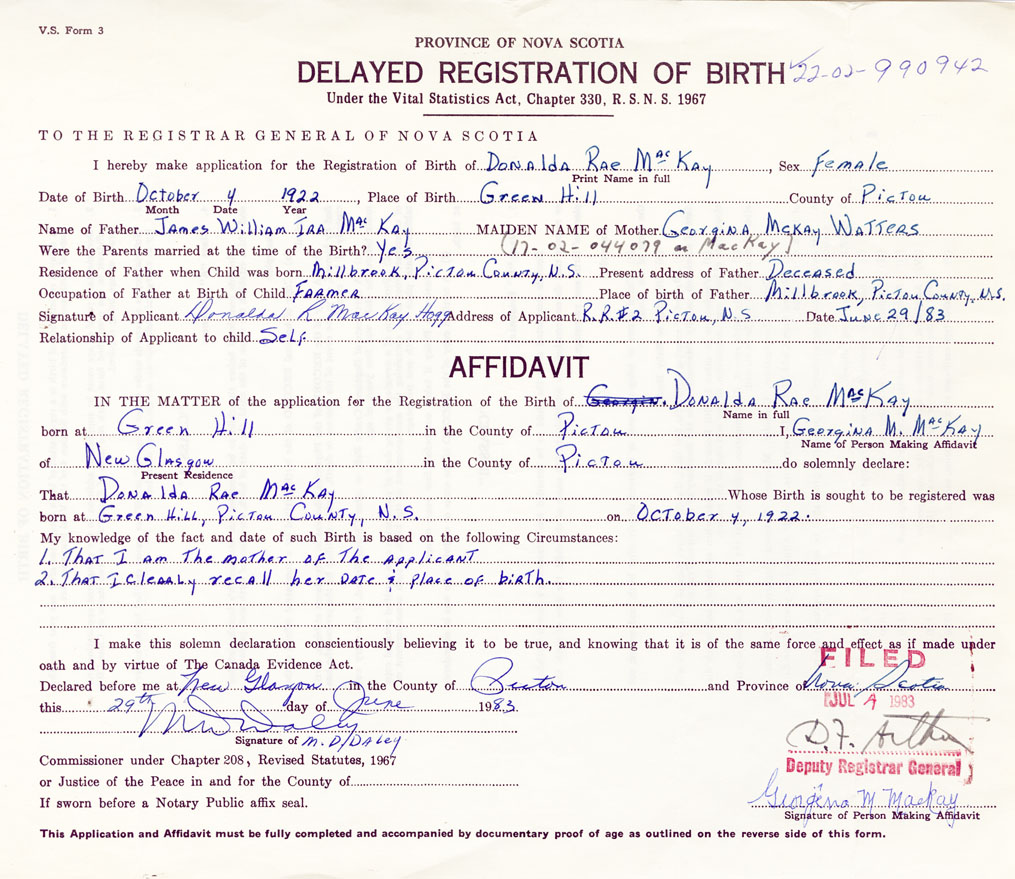 V.S. Form 3
PROVINCE OF NOVA SCOTIA
DELAYED REGISTRATION OF BIRTH 22-02-990942
Under the Vital Statistics Act, Chapter 330, R.S.N.S. 1967
TO THE REGISTRAR GENERAL OF NOVA SCOTIA
I hereby make application for the Registration of Birth of Donalda Rae MacKay, Sex Female
Print Name in full
Date of Birth October 4 1922, Place of Birth Green Hill County of Pictou
Month Date Year
Name of Father James William Ira MacKay MAIDEN NAME of Mother Georgina McKay Watters
Were the Parents married at the time of the Birth? Yes (17-02-044079 as MacKay)
Residence of Father when Child was born Millbrook, Pictou County, N.S. Present address of Father Deceased
Occupation of Father at Birth of Child Farmer Place of birth of Father Millbrook, Pictou County, N.S.
Signature of Applicant Donalda R MacKay Hogg Address of Applicant R.R.#2 Pictou, N.S Date June 29/83
Relationship of Applicant to child Self
AFFIDAVIT
IN THE MATTER of the application for the Registration of the Birth of Georgin. Donalda Rae MacKay
Name in full
born at Green Hill in the County of Pictou I, Georgina M. MacKay
Name of Person Making Affidavit
of New Glasgow in the County of Pictou do solemnly declare:
Present Residence
That Donalda Rae MacKay Whose Birth is sought to be registered was
born at Green Hill, Pictou County, N.S. on October 4, 1922.
My knowledge of the fact and date of such Birth is based on the following Circumstances:
1. That I am the mother of the applicant
2. That I clearly recall her date & place of birth.
I make this solemn declaration conscientiously believing it to be true, and knowing that it is of the same force and effect as if made under
oath and by virtue of The Canada Evidence Act.
FILED
Declared before me at New Glasgow in the County of Pictou and Province of Nova Scotia
this 29th day of June 1983.
JUL 4 1983
M D Daley
D.F. Arthur
Signature of M.D. Daley
Deputy Registrar General
Commissioner under Chapter 208, Revised Statutes, 1967
or Justice of the Peace in and for the County of
Georgina M MacKay
If sworn before a Notary Public affix seal.
Signature of Person Making Affidavit
This Application and Affidavit must be fully completed and accompanied by documentary proof of age as outlined on the reverse side of this form.